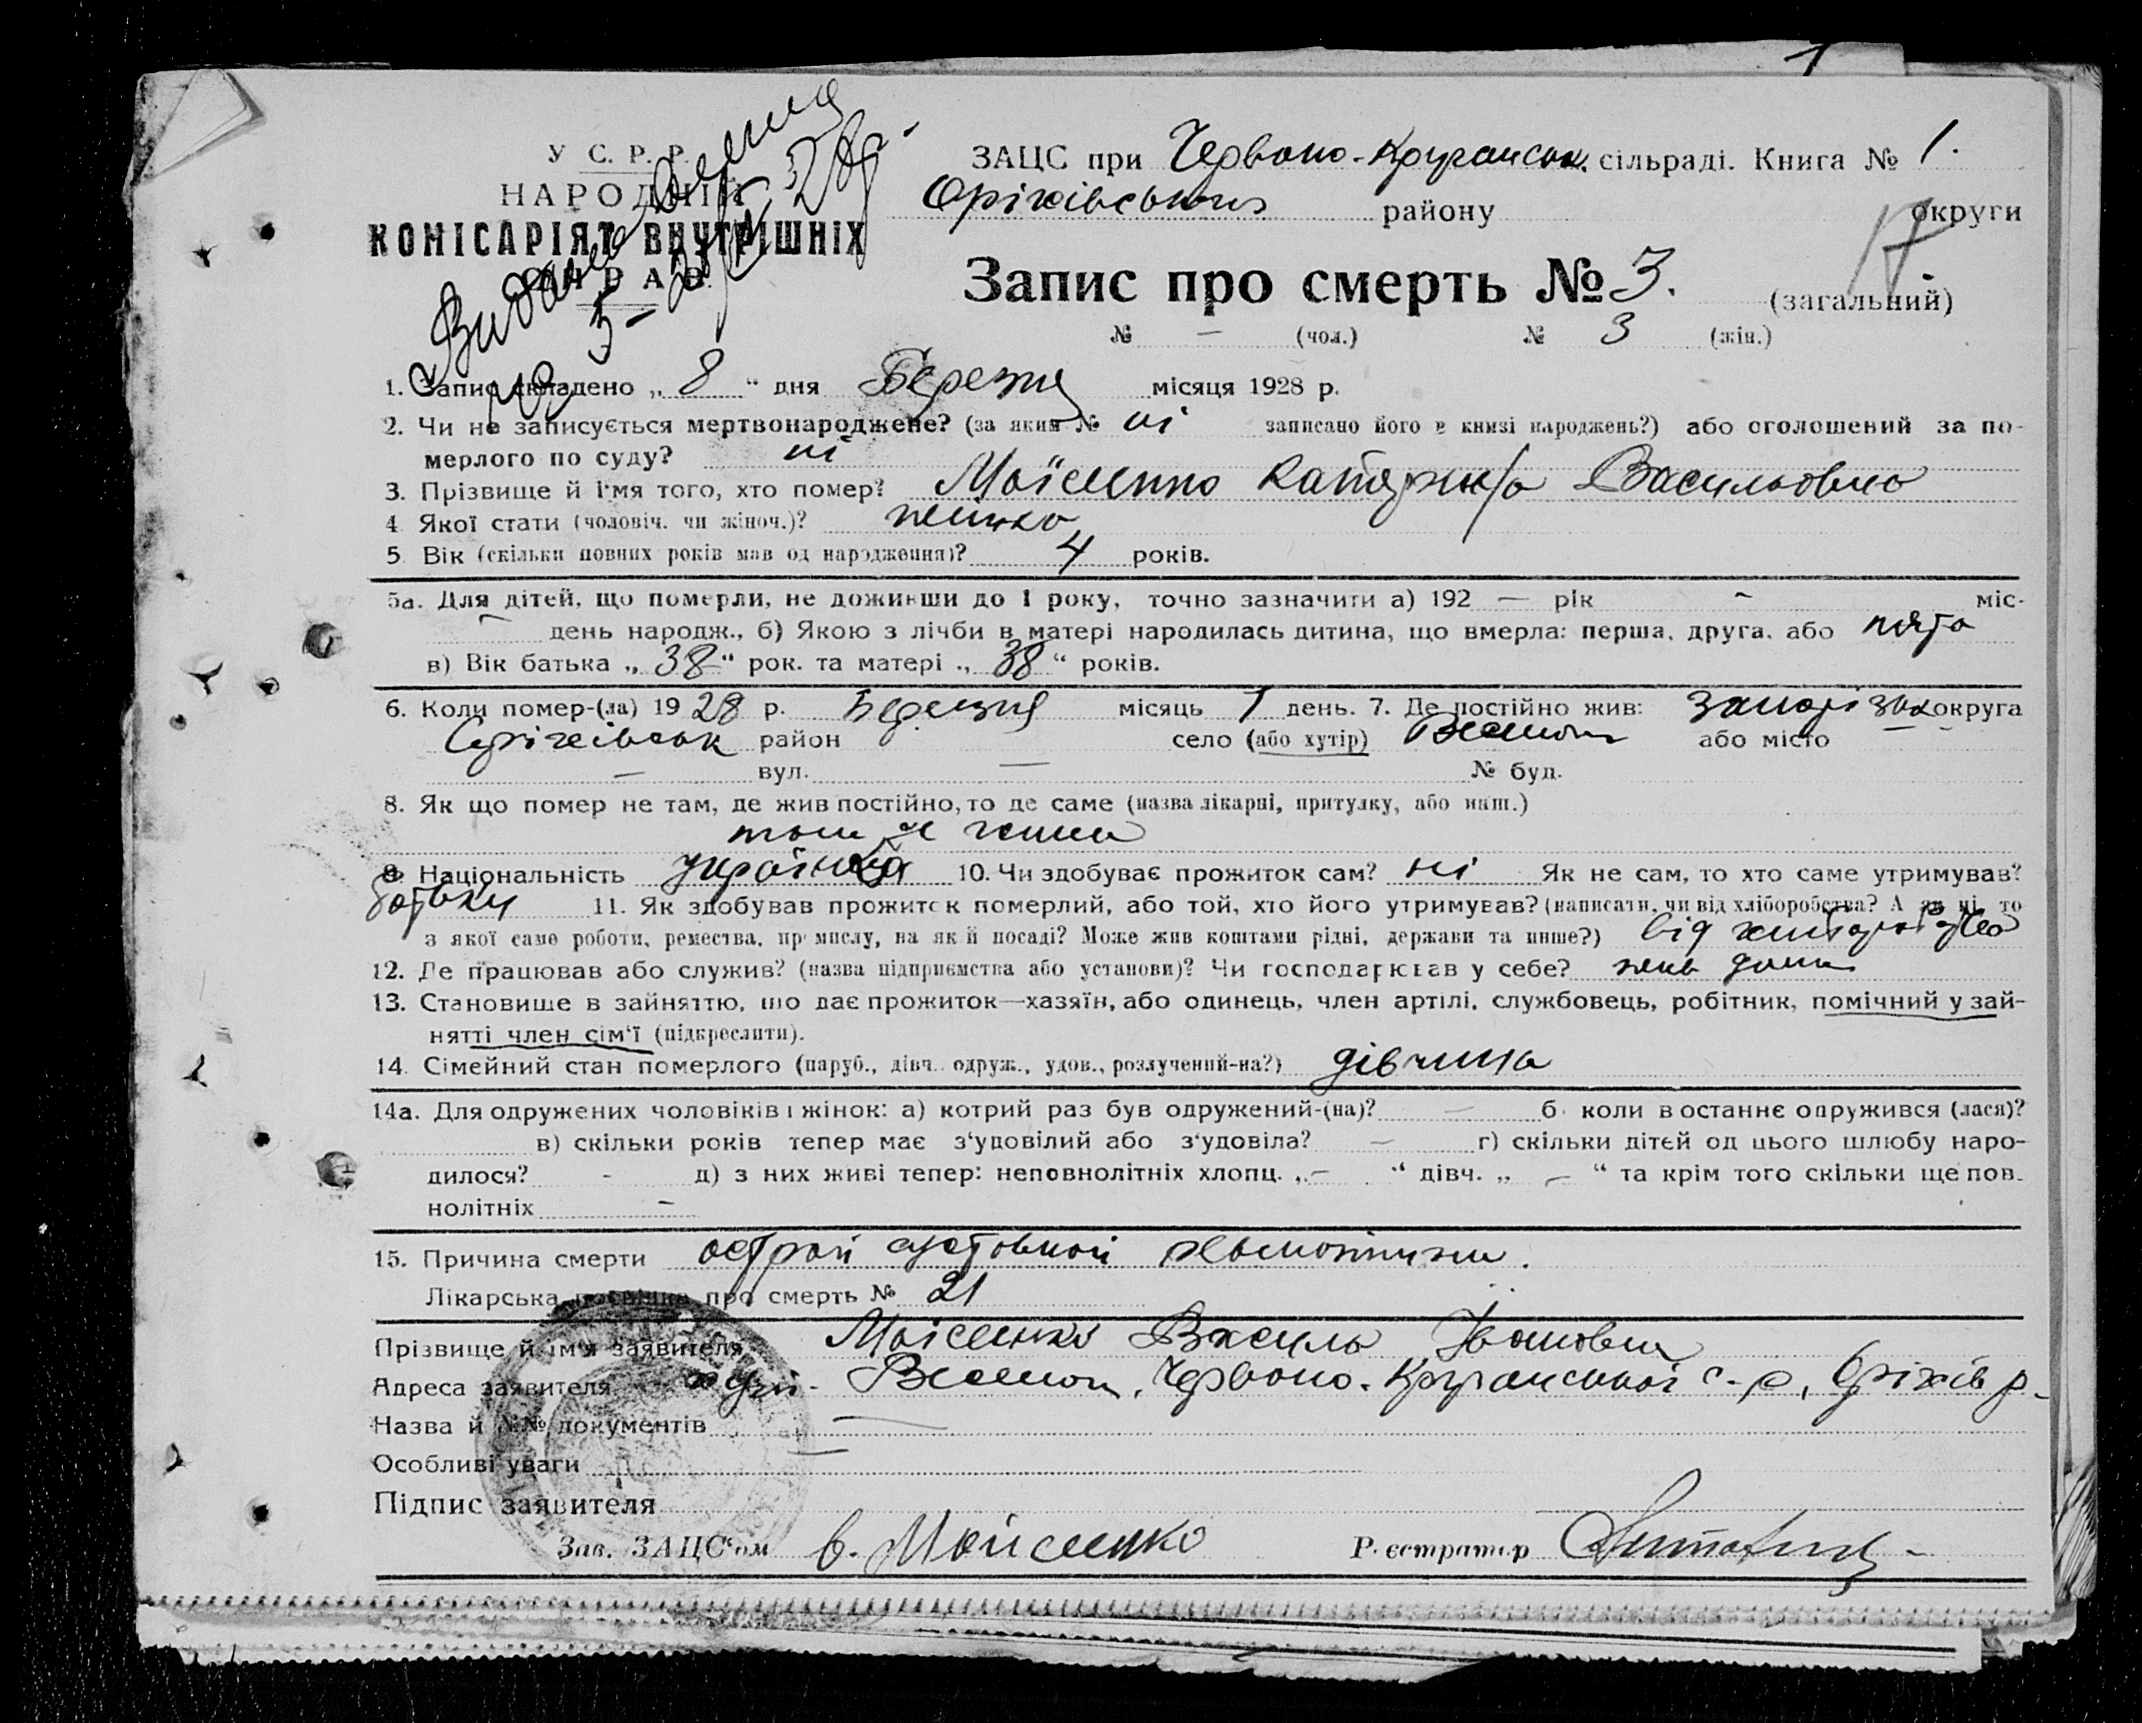 1
У С. Р. Р.
НАРОДНІЙ
КОМІСАРІЯТ ВНУТРІШНІХ
СПРАВ.
ЗАЦС при Червоно-Кручанськ. сільраді. Книга № 1.
Оріхівського району округи
17
Запис про смерть № 3. (загальний)
№ — (чол.) № 3 (жін.)
1. Запис складено „ 8 “ дня Березня місяця 1928 р.
2. Чи не записується мертвонароджене? (за яким № ні записано його в книзі народжень?) або оголошений за по-
мерлого по суду? ні
3. Прізвище й імя того, хто помер? Моїсеєнко Катерина Васильовна
4 Якої стати (чоловіч. чи жіноч.)? жіноча
5 Вік (скільки повних років мав од народження)? 4 років.
5а. Для дітей, що померли, не доживши до 1 року, точно зазначити а) 192 — рік - міс-
- день народж., б) Якою з лічби в матері народилась дитина, що вмерла: перша, друга, або пята
в) Вік батька „ 38 “ рок. та матері „ 38 “ років.
6. Коли помер-(ла) 19 28 р. Березня місяць 1 день. 7. Де постійно жив: Запорізьк округа
Оріхівськ район село (або хутір) або місто
— вул. — № буд.
8. Як що помер не там, де жив постійно, то де саме (назва лікарні, притулку, або инш.)
там де жила
9. Національність українка 10. Чи здобуває прожиток сам? ні Як не сам, то хто саме утримував?
батьки 11. Як здобував прожиток померлий, або той, хто його утримував? (написати, чи від хліборобства? А як ні, то
з якої саме роботи, ремества, промислу, на якій посаді? Може жив коштами рідні, держави та инше?) від
12. Де працював або служив? (назва підприємства або установи)? Чи господарював у себе?
13. Становище в зайняттю, що дає прожиток—хазяїн, або одинець, член артілі, службовець, робітник, помічний у зай-
нятті член сім‘ї (підкреслити).
14. Сімейний стан померлого (паруб., дівч. одруж., удов., розлучений-на?) дівчина
14а. Для одружених чоловіків і жінок: а) котрий раз був одружений-(на)? — б) коли востаннє одружився (лася)?
в) скільки років тепер має з‘удовілий або з‘удовіла? — г) скільки дітей од цього шлюбу наро-
дилося? - д) з них живі тепер: неповнолітніх хлопц. „ — “ дівч. „ — “ та крім того скільки ще пов-
нолітніх -
15. Причина смерти острой суставной
Лікарська посвідка про смерть № 21
Прізвище й ім'я заявителя Моісеєнко Василь Іванович
Адреса заявителя Червоно-Кручанської с-р, Оріхів р-
Назва й №№ документів —
Особливі уваги —
Підпис заявителя
Зав. ЗАЦС‘ом В. Мойсеєнко Реєстратор